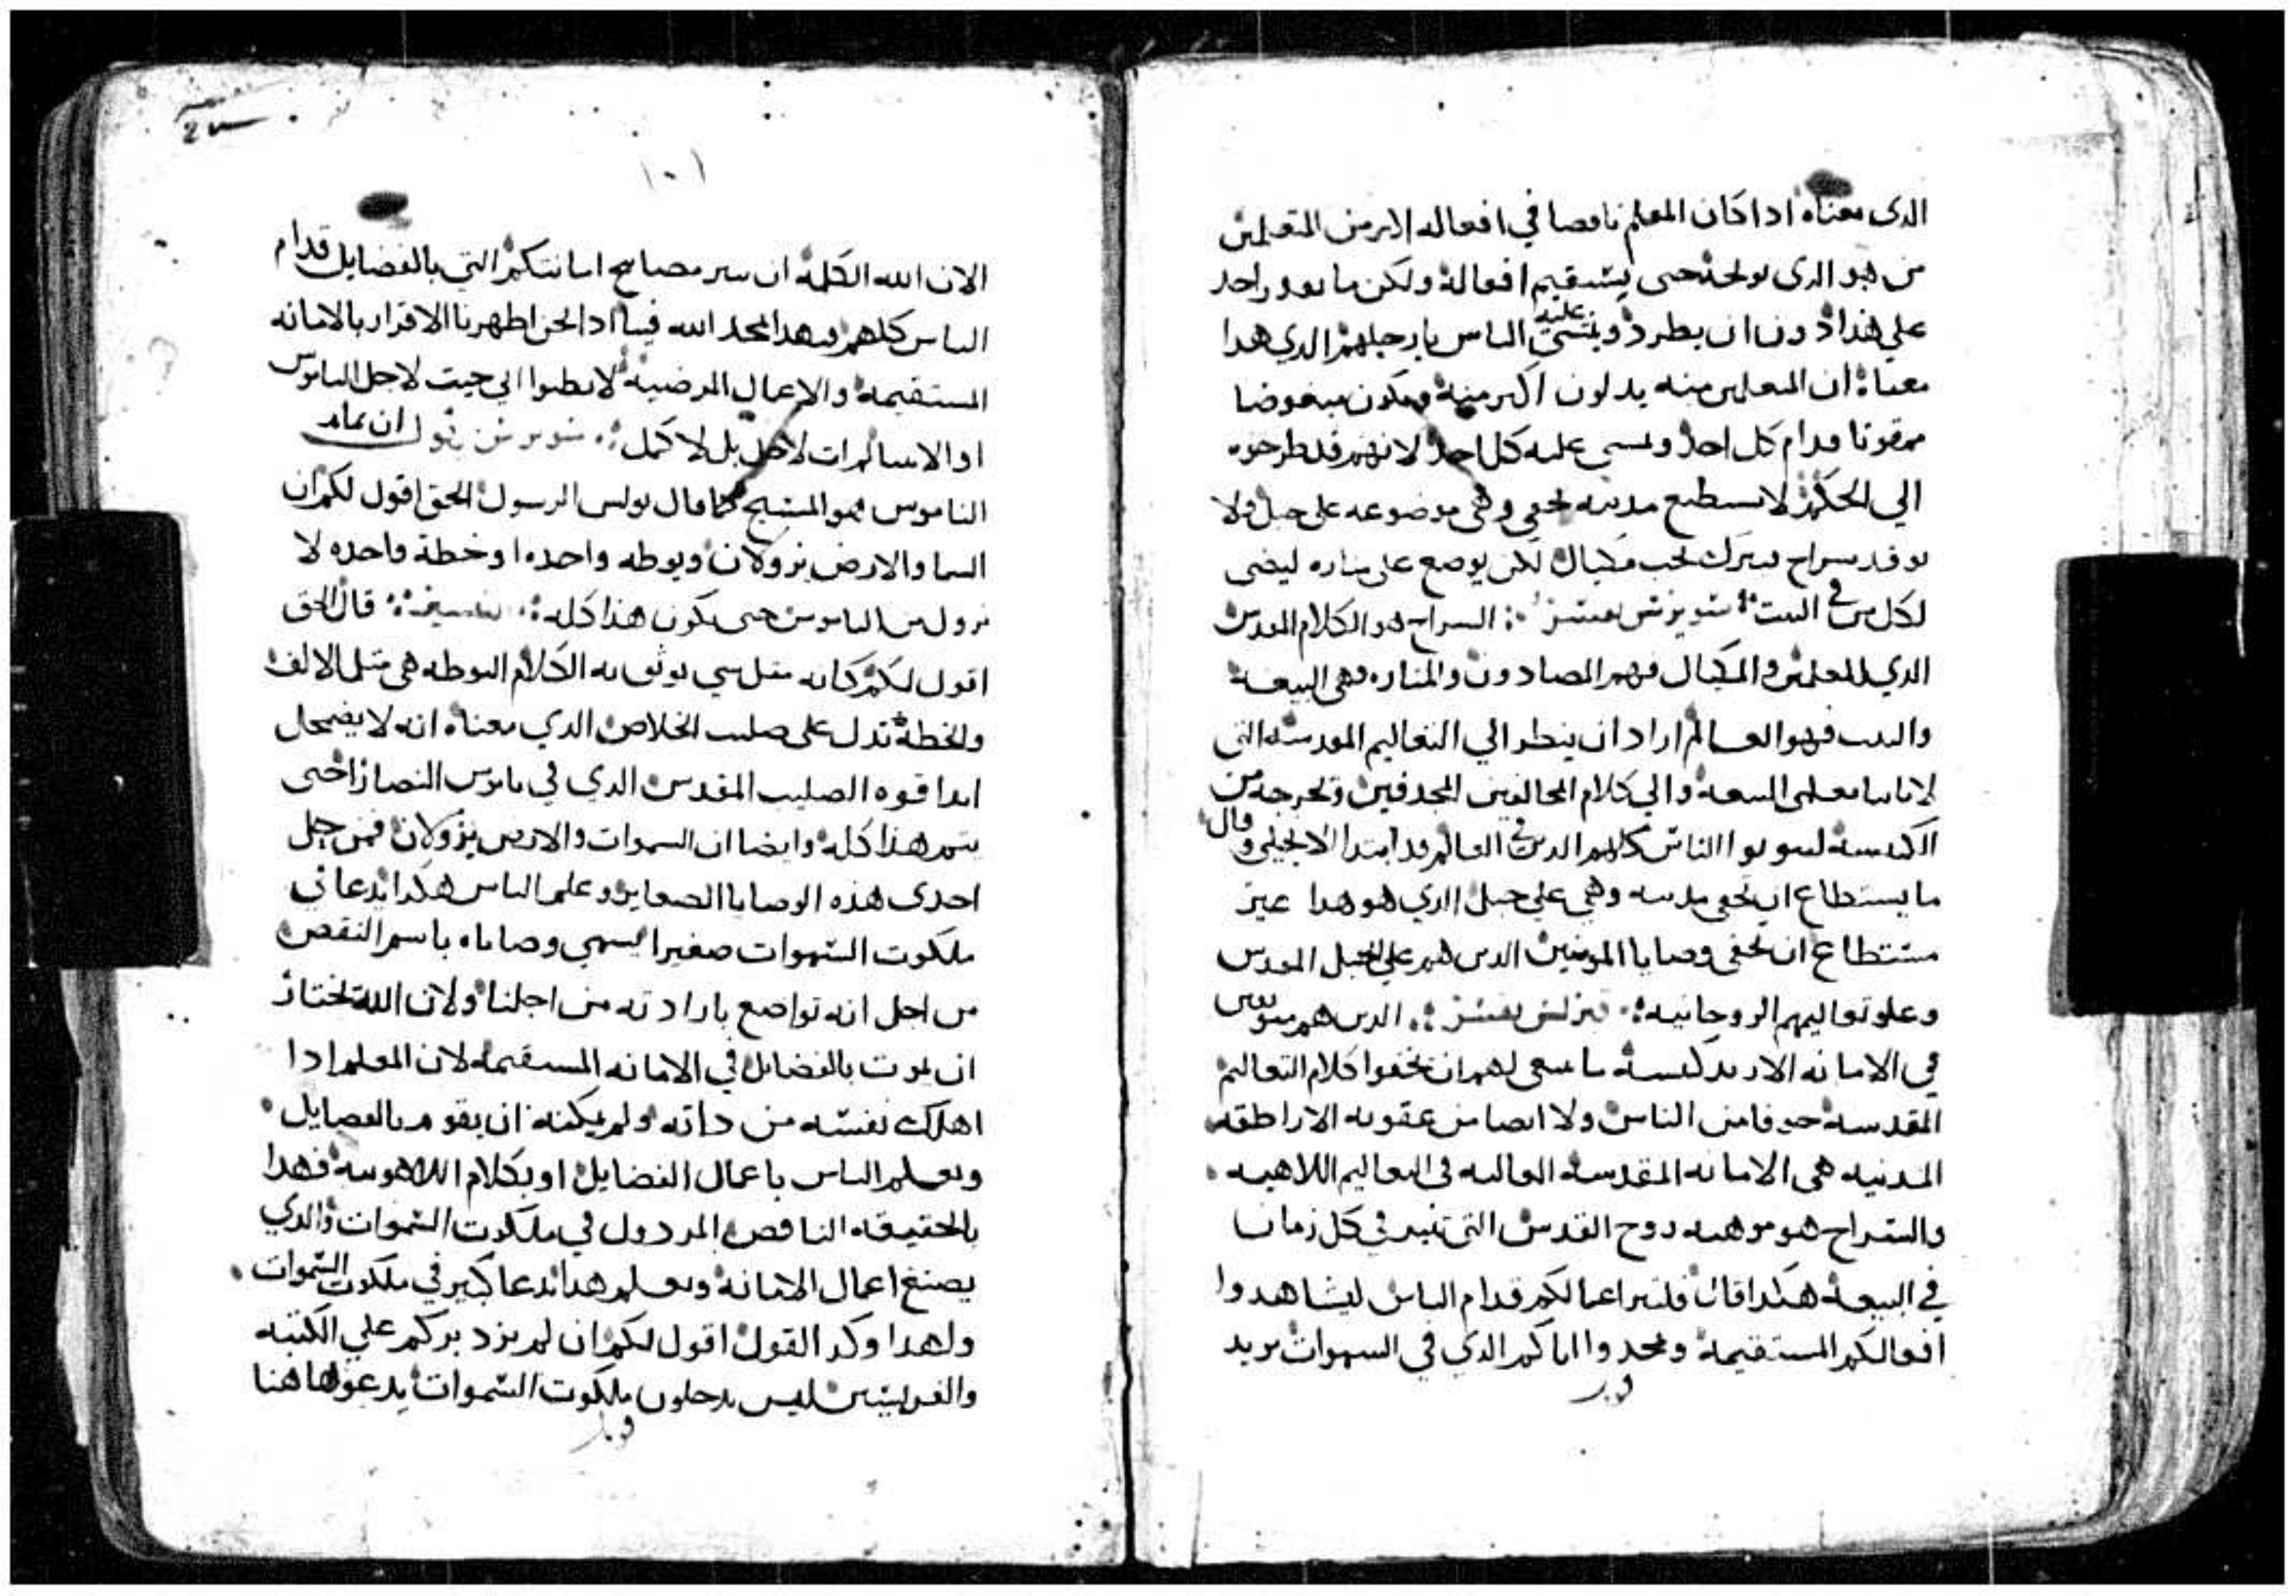 الدى معناه ادا كان المعلم ناقصا في افعاله الا بر من المتعلمين
من هو الدى يوبخه حتى يستقيم افعاله ولكن ما يعود واحد
علي هدا دون ان يطرد ويمشي عليه الناس بارجلهم الدي هدا
معناه ان المتعلمين منه يدلون اكبر منه ويكون مبغوضا
ممقوتا قدام كل احد ويمسى عليه كل احد لانهم قد طرحوه
الي الحكم لا تستطيع مدينه تخفي وهى موضوعه على جبل ولا
يوقد سراج فيترك تحت مكيال لكن يوضع على مناره ليضى
لكل من في البيت سويرس يفسر السراج هو الكلام المقدس
الدي للمعلمين والمكيال فهم المصادون والمناره فهى البيعه
والبيت فهو العالم اراد ان ينظر الي التعاليم المقدسه التى
لابائنا معلمى البيعه والي كلام المخالفين المجدفين وتخرجه من
الكنيسه ليتوبوا الناس كلهم الدين في العالم قد ابتدا الانجيلى وقال
ما يستطاع ان تخفى مدينه وهى على جبل الدي هو هدا غير
مستطاع ان تخفى وصايا المومنين الدين هم على الجبل المقدس
وعلو تعاليمهم الروحانيه كيرلس يفسر الدين هم مومنين
في الامانه الارتدكسيه ما ينبغى لهم ان يخفوا كلام التعاليم
المقدسه خوفا من الناس ولا ايضا من عقوبه الاراطقه
المدينه هى الامانه المقدسه العاليه في التعاليم اللاهيه
والسراج هو موهبه روح القدس التى تنير في كل زمان
في البيعه هكدا قال فلتنير اعمالكم قدام الناس ليشاهدوا
افعالكم المستقيمه ويمجدوا اباكم الدي في السموات يريد
١٠١
الان الله الكلمه ان ينير مصابيح امانتكم التي بالفضايل قدام
الناس كلهم فبهدا يمجد الله فينا ادا نحن اظهرنا الاقرار بالامانه
المستقيمه والاعمال المرضيه لا تظنوا اني جيت لاحل الناموس
او الانبيا لم ات لاحل بل لاكمل سويرس يقول ان تمام
الناموس هو المسيح كما قال بولس الرسول الحق اقول لكم ان
السما والارض يزولان ويوطه واحده او خطة واحده لا
تزول من الناموس حتى يكون هذا كله تفسير قال الحق
اقول لكم كانه مثل شي يوثق به الكلام اليوطه هي مثل الالف
والخطه تدل على صليب الخلاص الدي معناه انه لا يضمحل
ابدا قوه الصليب المقدس الدي في ناموس النصارا حتى
يتم هذا كله وايضا ان السموات والارض يزولان فمن حل
احدى هذه الوصايا الصغاير وعلم الناس هكدا يدعا في
ملكوت السموات صغيرا يسمي وصاياه باسم النقص
من اجل انه تواضع بارادته من اجلنا ولان الله تختار
ان يموت بالفضايل في الامانه المستقيمه لان المعلم ادا
اهلك نفسه من داته ولم يمكنه ان يقوم بالفضايل
ويعلم الناس باعمال الفضايل او بكلام اللاهوتيه فهدا
بالحقيقه الناقص المردول في ملكوت السموات والدي
يصنع اعمال الامانه ويعلم هدا يدعا كبير في ملكوت السموات
ولهدا وكد القول اقول لكم ان لم يزد بركم علي الكتبه
والفريسين ليس تدخلون ملكوت السموات يدعوا هاهنا